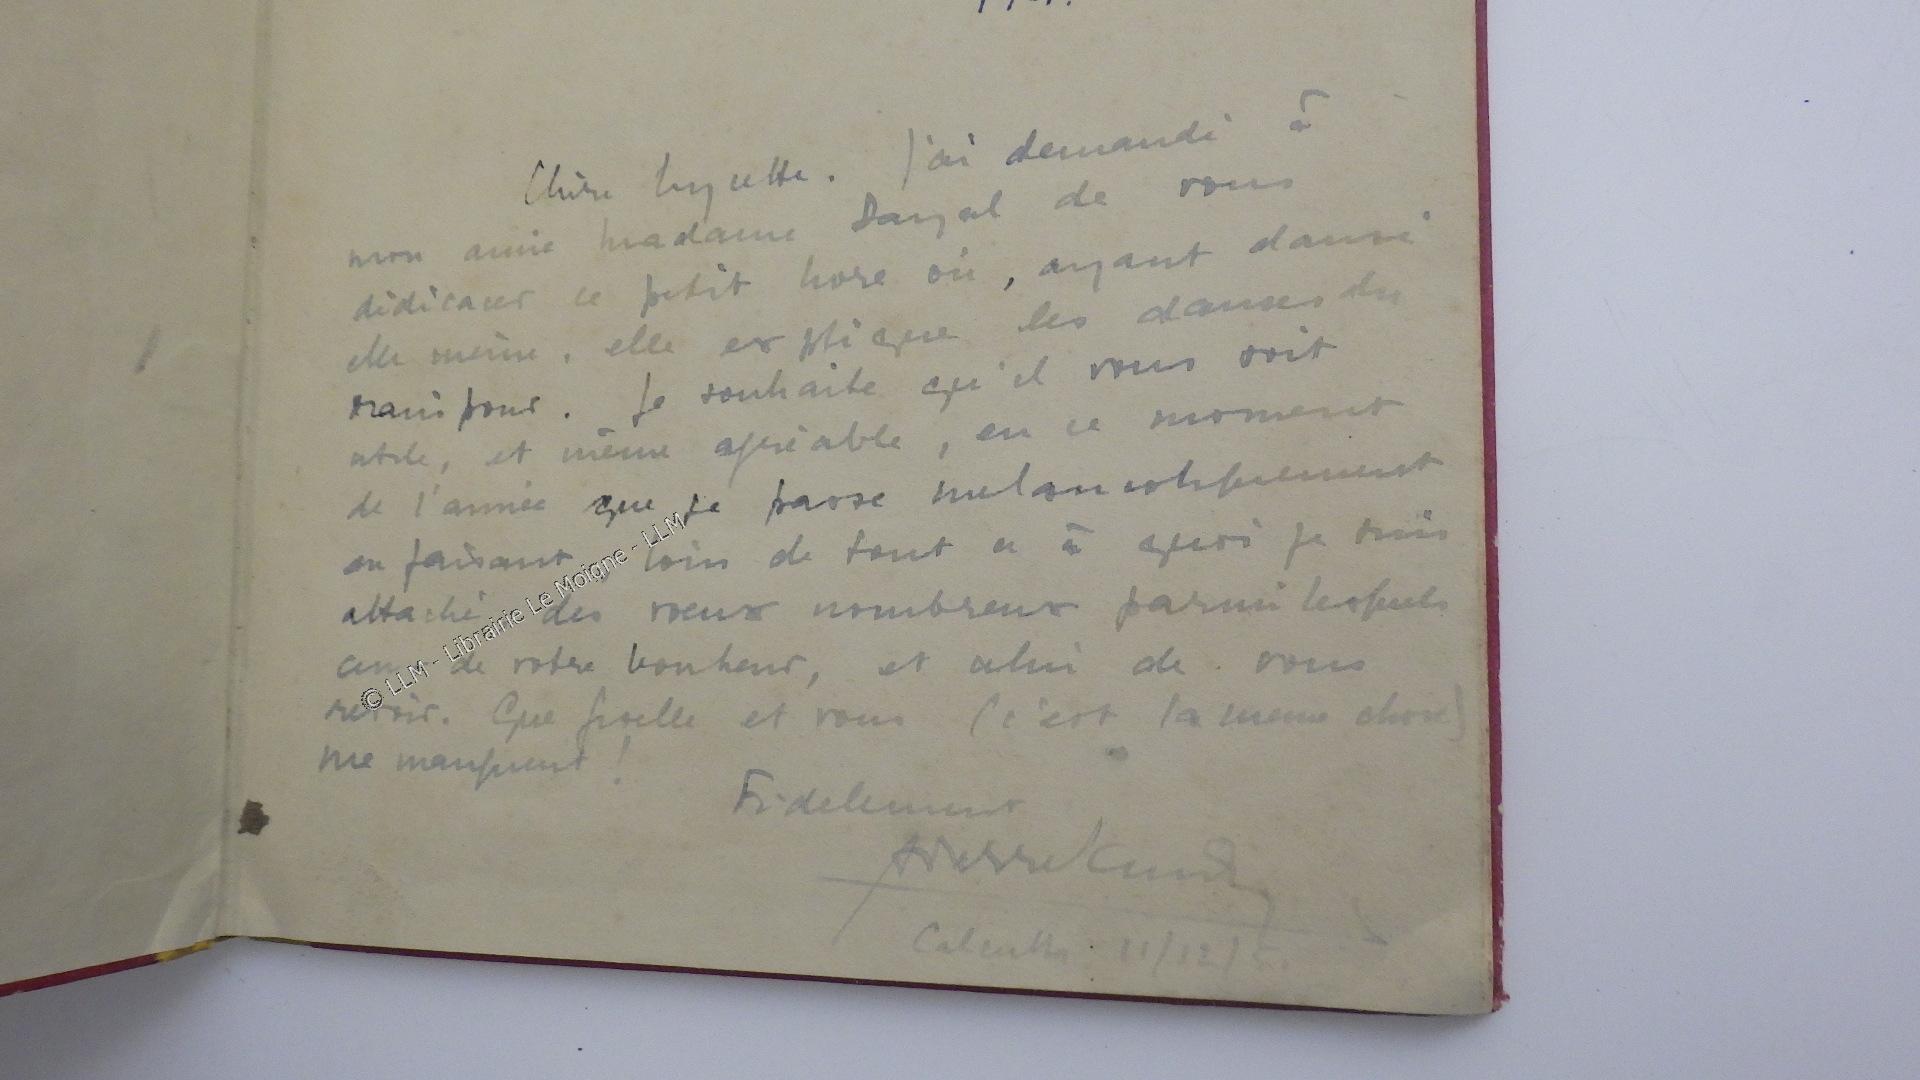 Chère Lycette. J'ai demandé à
mon amie Madame Dayal de vous
dédicacer ce petit livre où, ayant dansé
elle même, elle explique les danses du
Je souhaite qu'il vous soit
utile, et même agréable, en ce moment
de l'année que je passe mélancoliquement
en faisant, loin de tout ce à quoi je suis
attaché, des vœux nombreux parmi lesquels
ceux de votre bonheur, et celui de vous
revoir. Que et vous (c'est la même chose)
me manquent !
Fidèlement
Pierre
Calcutta 11/12/
© LLM - Librairie Le Moigne - LLM